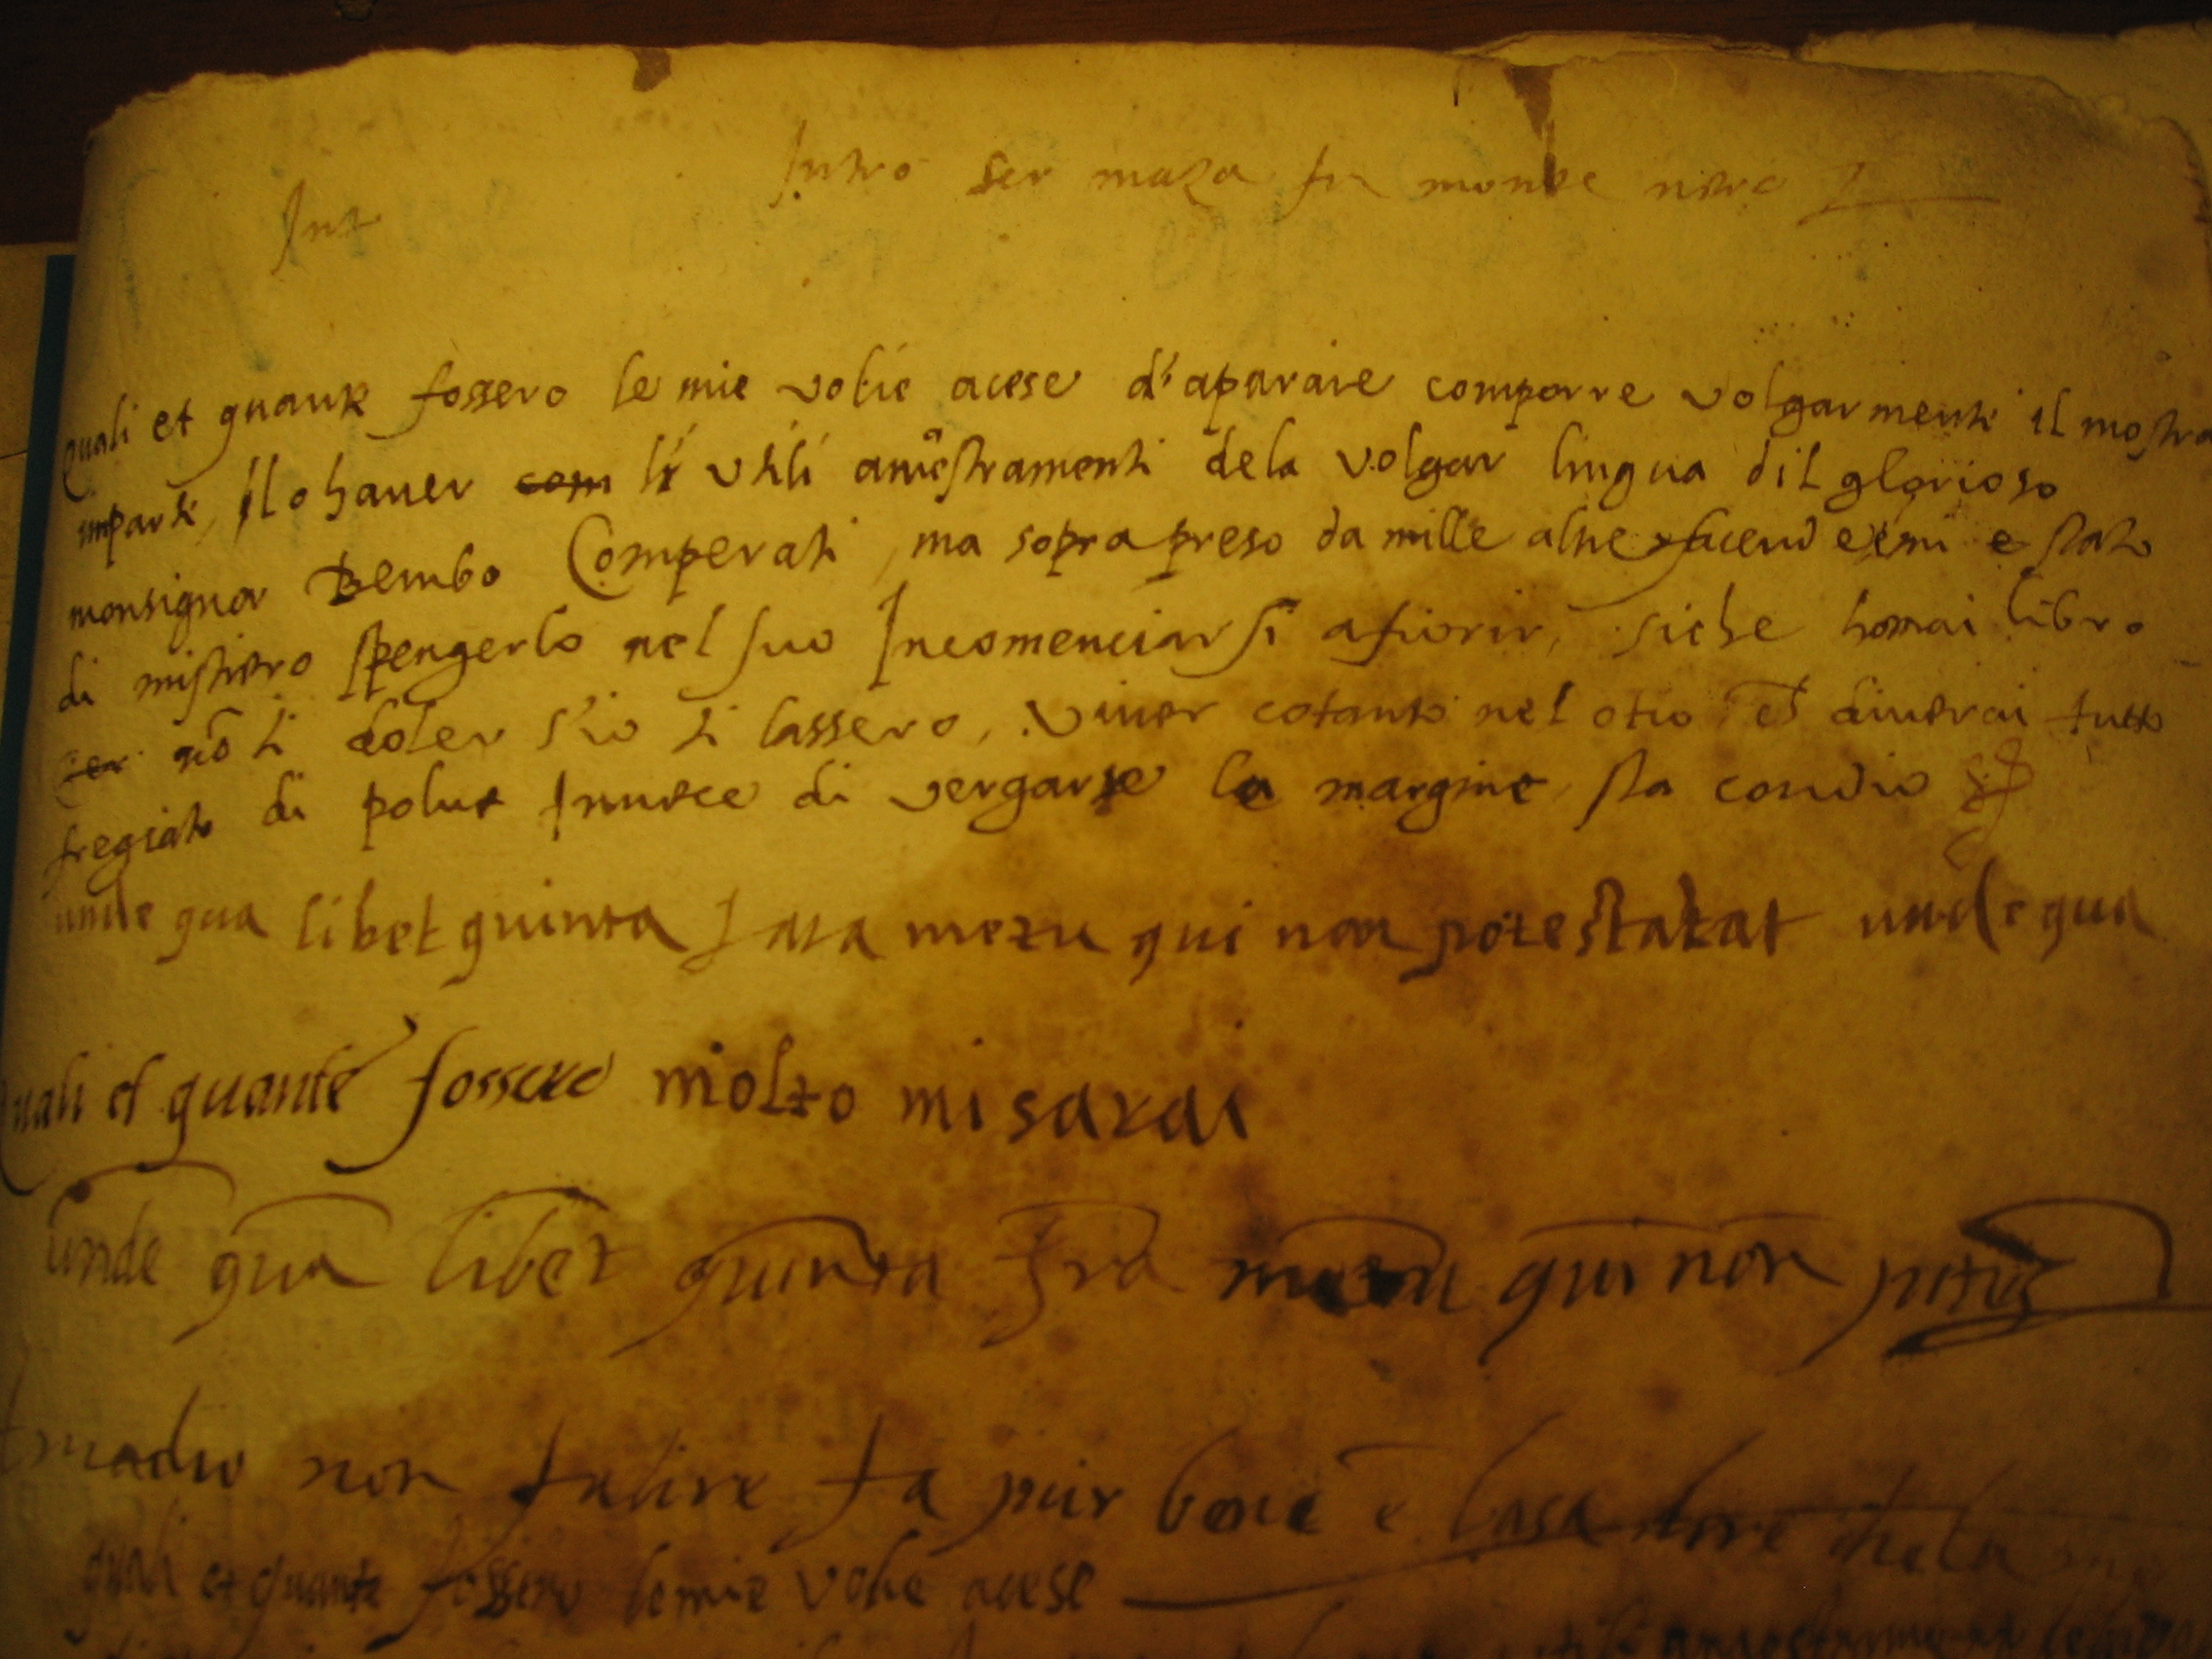 Intro ser maza fu monte nero
Int
Quali et quante fossero le mie volie acese d'aparare comporre volgarmente il mostra
imparte, Il o haver com li utili amestramenti dela volgar lingua dil glorioso
monsignor Bembo Comperati, ma sopra preso da mille altre facend e mi e stato
di mistiero spengerlo nel suo Incomenciarsi afiorir, siche homai libro
nõ ti doler s'io ti lassero, viver cotanto nel otio et diverai tutto
fregiato di polve Invece di vergarte la margine sta con dio
unde qua libet quinta metu qui non potestatat unde qua
Quali et quante fossero molto mi sarai
unde qua libet quinta metu qui non
non falire fa pur bene e lasa dire
quali et quante fossero le mie volie acese